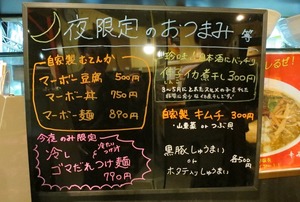 夜限定のおつまみ
自家製 むてんか
マーボー豆腐 500円
マーボー丼 750円
マーボー麺 890円
今夜のみ限定
冷し
ゴマだれつけ麺
790円
珍味 日本酒にバッチリ
イカ煮干し 300円
自家製 キムチ 300円
山東菜 or つぶ貝
黒豚しゅうまい
or 各500円
ホタテ入しゅうまい